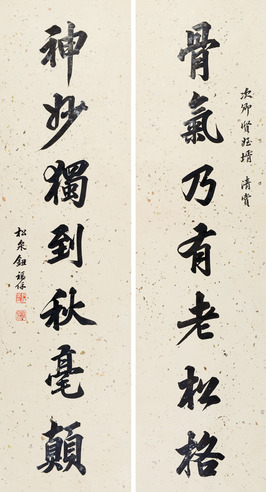 次卿贤姪壻 清賞
骨氣乃有老松格
神妙獨到秋毫顛
松泉鈕福保